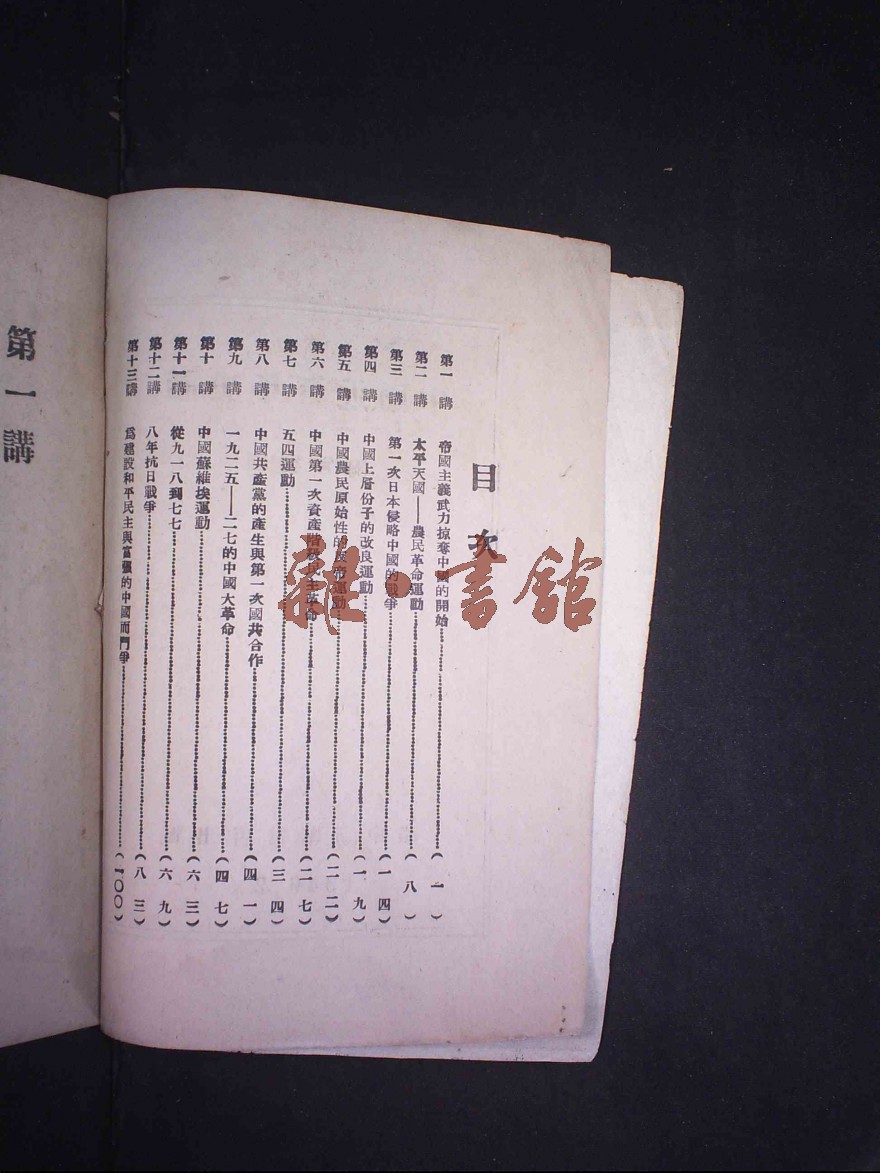 目次
第一講 帝國主義武力掠奪中國的開始(一)
第二講 太平天國——農民革命運動(八)
第三講 第一次日本侵略中國的戰爭(一四)
第四講 中國上層份子的改良運動(一九)
第五講 中國農民原始性的反帝運動(二二)
第六講 中國第一次資產階級民主革命(二七)
第七講 五四運動(三四)
第八講 中國共產黨的產生與第一次國共合作(四一)
第九講 一九二五——二七的中國大革命(四七)
第十講 中國蘇維埃運動(六三)
第十一講 從九一八到七七(六九)
第十二講 八年抗日戰爭(八三)
第十三講 爲建設和平民主與富强的中國而鬥爭(一〇〇)
第一講
雜書館